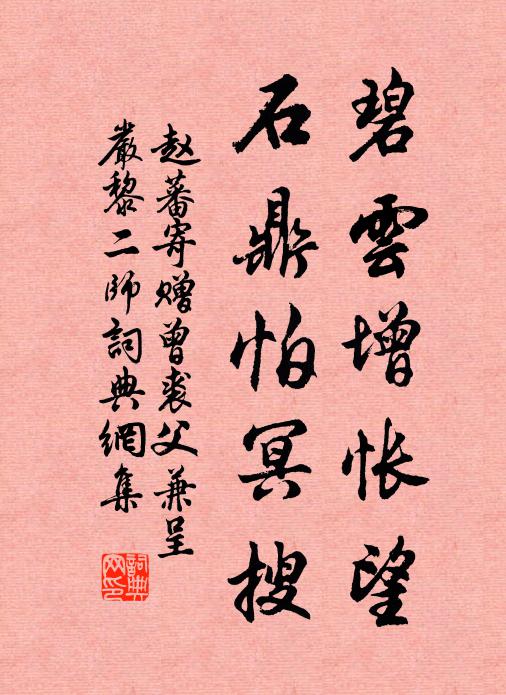 碧雲增怅望
石鼎怕冥搜
赵蕃寄赠曾裘父兼呈
嚴黎二師詞典網集
詞典网印